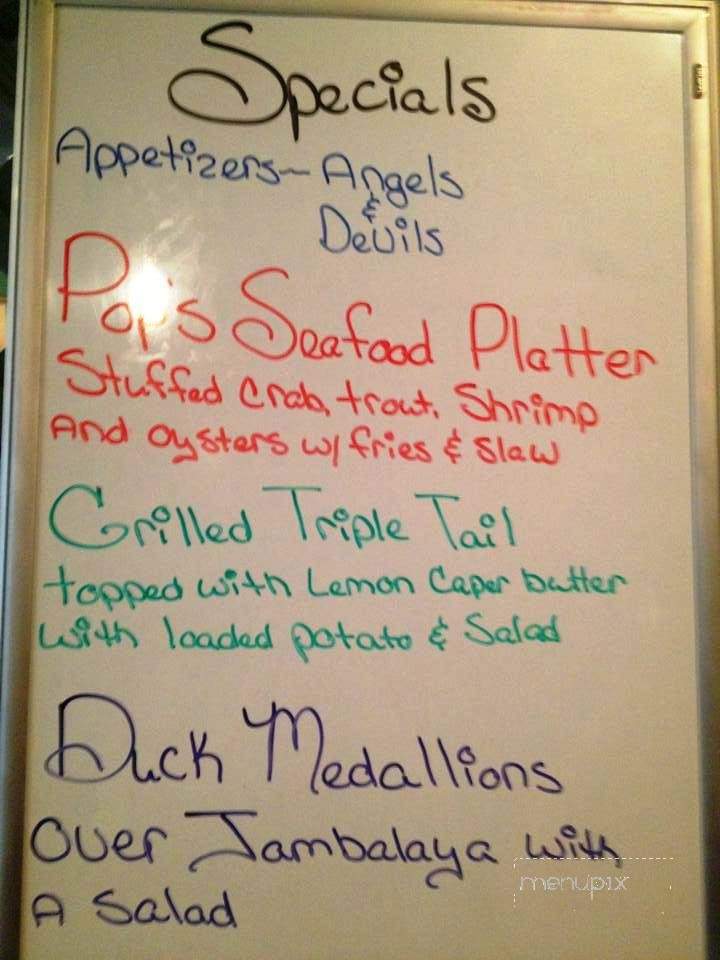 Specials
Appetizers~ Angels
&
Devils
Pop's Seafood Platter
Stuffed Crab, trout, Shrimp
And oysters w/ fries & slaw
Grilled Triple Tail
topped with Lemon Caper butter
with loaded potato & Salad
Duck Medallions
over Jambalaya with
A Salad
menupix